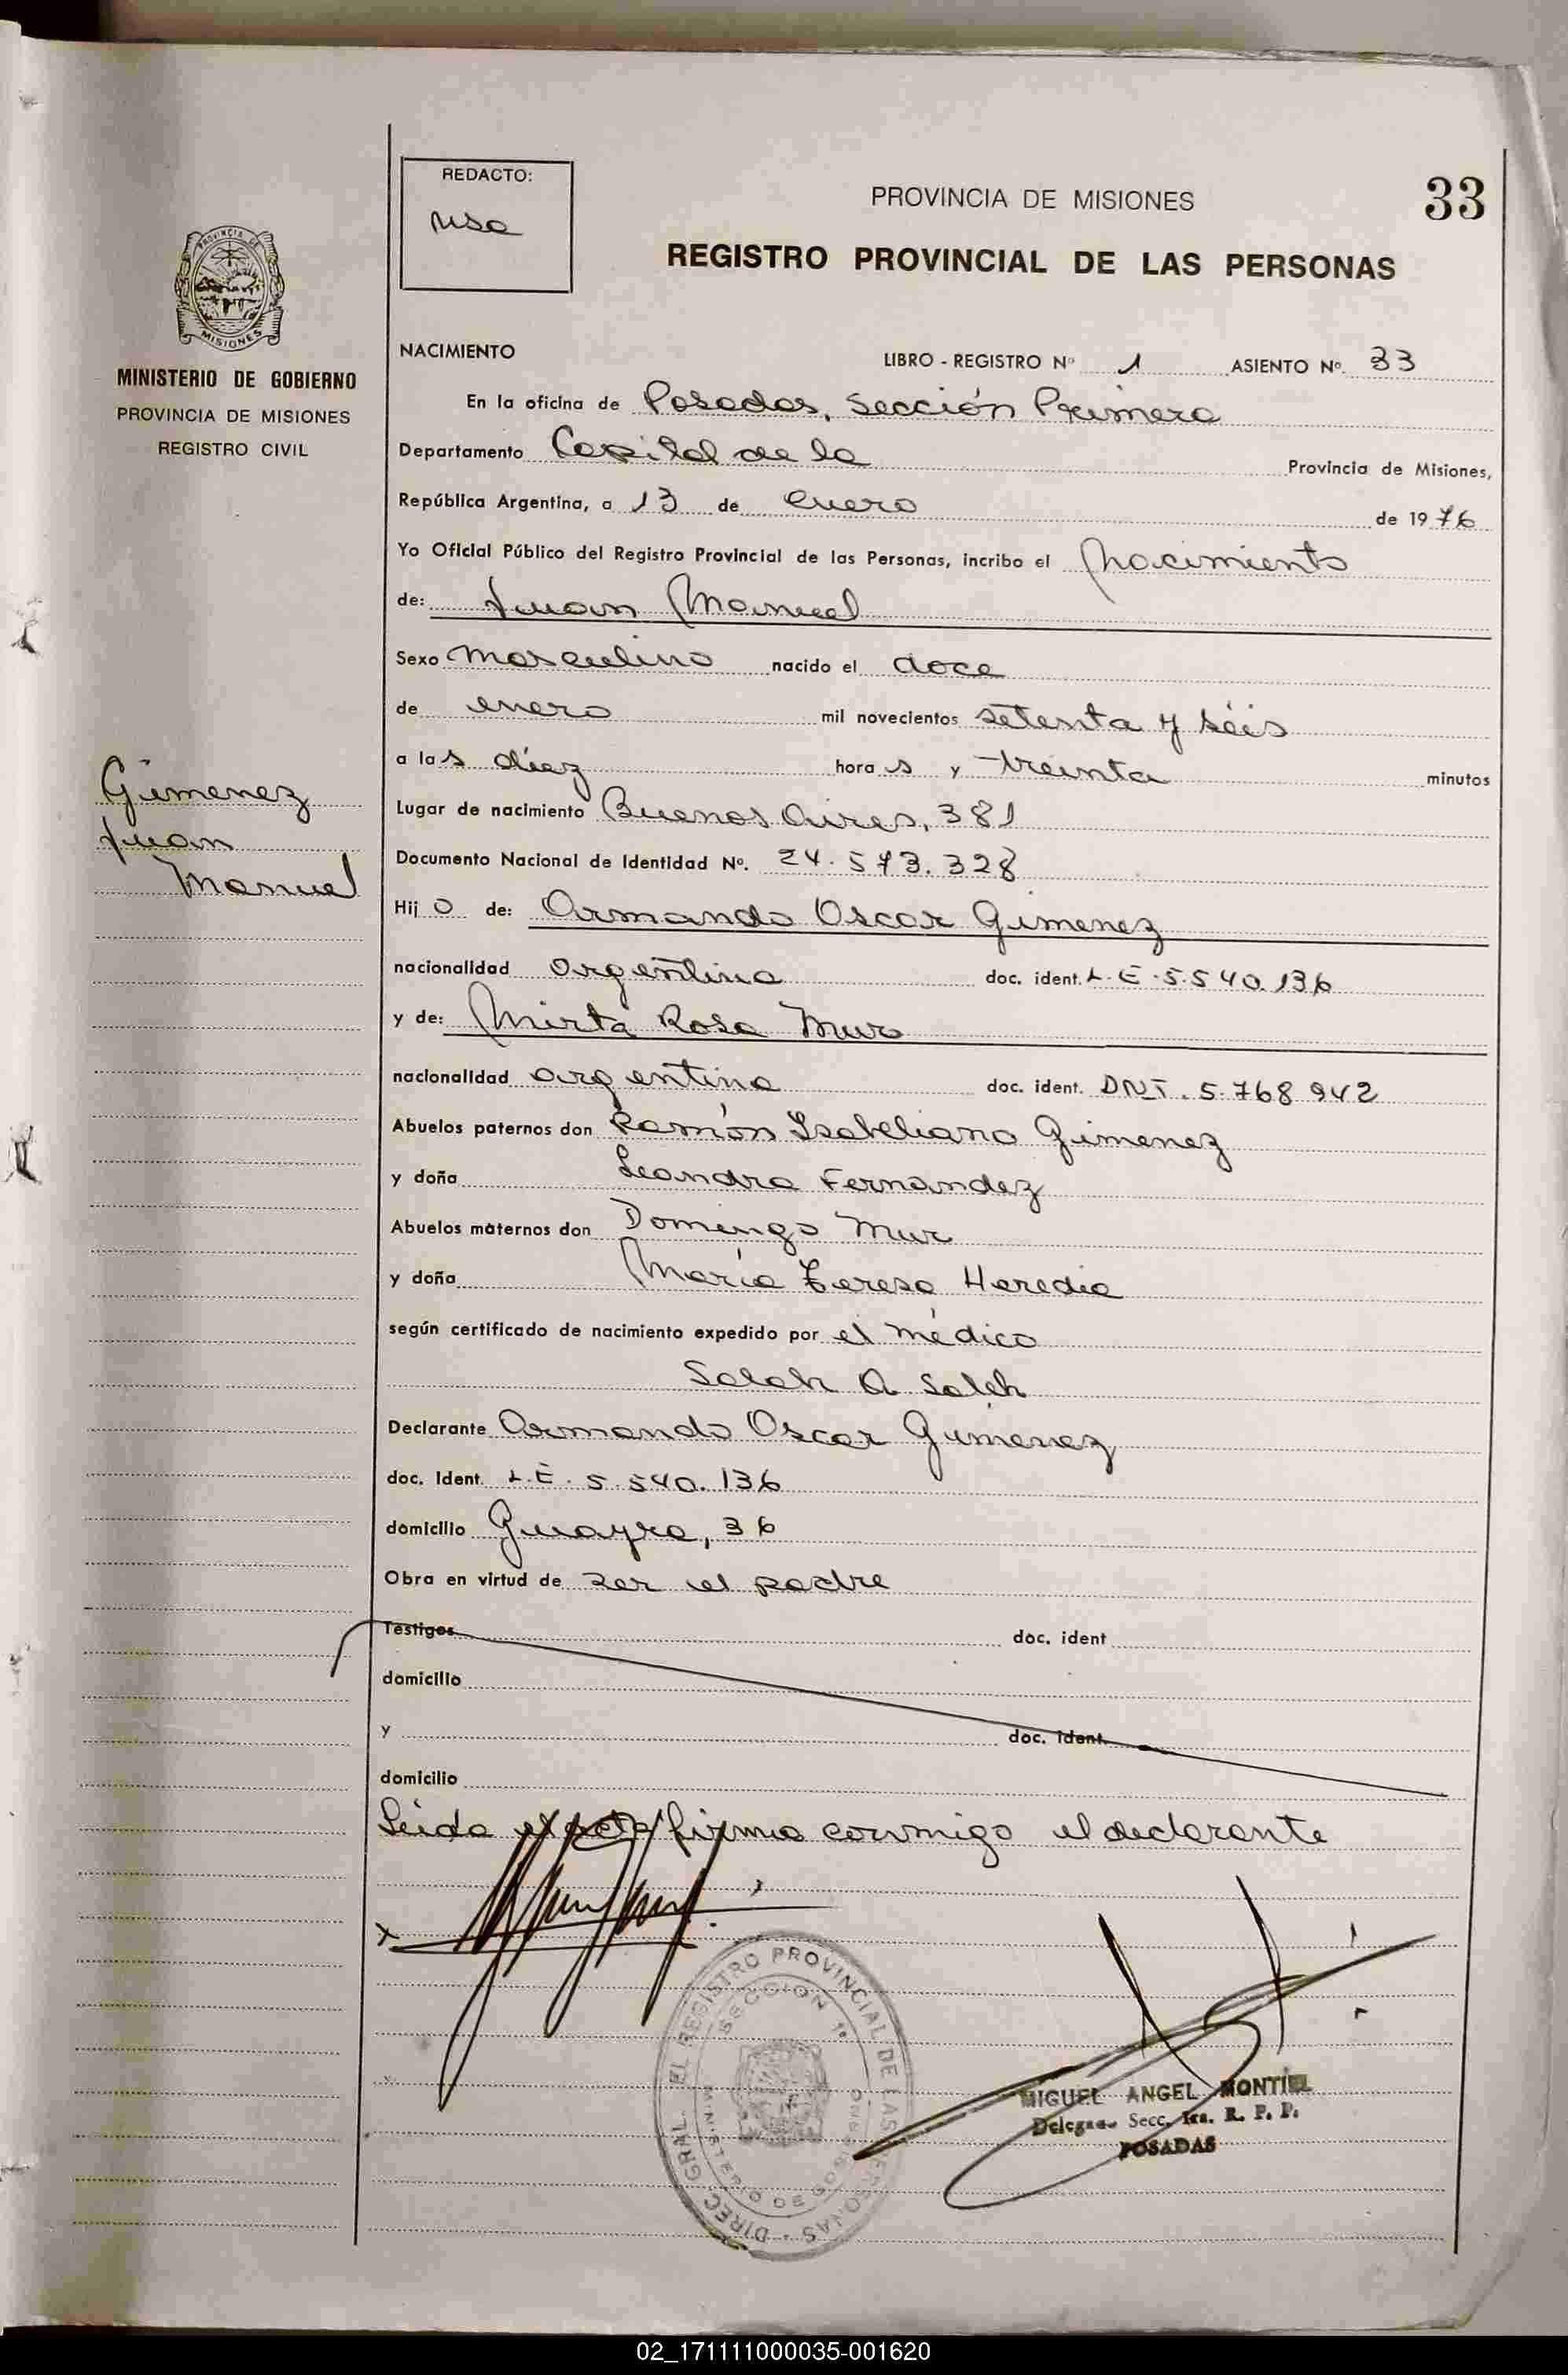 REDACTO:
PROVINCIA DE MISIONES
33
REGISTRO PROVINCIAL DE LAS PERSONAS
PROVINCIA DE
MISIONES
MINISTERIO DE GOBIERNO
PROVINCIA DE MISIONES
REGISTRO CIVIL
NACIMIENTO LIBRO - REGISTRO Nº 1 ASIENTO Nº. 33
En la oficina de Posadas, Sección Primera
Departamento Capital de la Provincia de Misiones,
República Argentina, a 13 de enero de 1976
Yo Oficial Público del Registro Provincial de las Personas, incribo el Nacimiento
de: Juan Manuel
Sexo masculino nacido el doce
de enero mil novecientos setenta y séis
a las diez horas y treinta minutos
Gimenez
Juan
Manuel
Lugar de nacimiento Buenos Aires, 381
Documento Nacional de Identidad Nº. 24.573.328
Hijo de: Armando Oscar Gimenez
nacionalidad argentina doc. ident. L.E. 5.540.136
y de: Mirta Rosa Mur
nacionalidad argentina doc. ident. DNI. 5.768.942
Abuelos paternos don Ramón Isabeliano Gimenez
y doña Leandra Fernandez
Abuelos maternos don Domingo Mur
y doña María Teresa Heredia
según certificado de nacimiento expedido por el médico
Saleh A Saleh
Declarante Armando Oscar Gimenez
doc. Ident. L.E. 5.540.136
domicilio Guayra, 36
Obra en virtud de ser el padre
Testigos doc. ident
domicilio
y doc. ident.
domicilio
Leída el acta firma conmigo el declarante
DIREC. GRAL. EL REGISTRO PROVINCIAL DE LAS PERSONAS
SECCION 1ª
MINISTERIO DE GOBIERNO
MIGUEL ANGEL MONTIEL
Delegado Secc. 1ra. R. P. P.
POSADAS
02_171111000035-001620